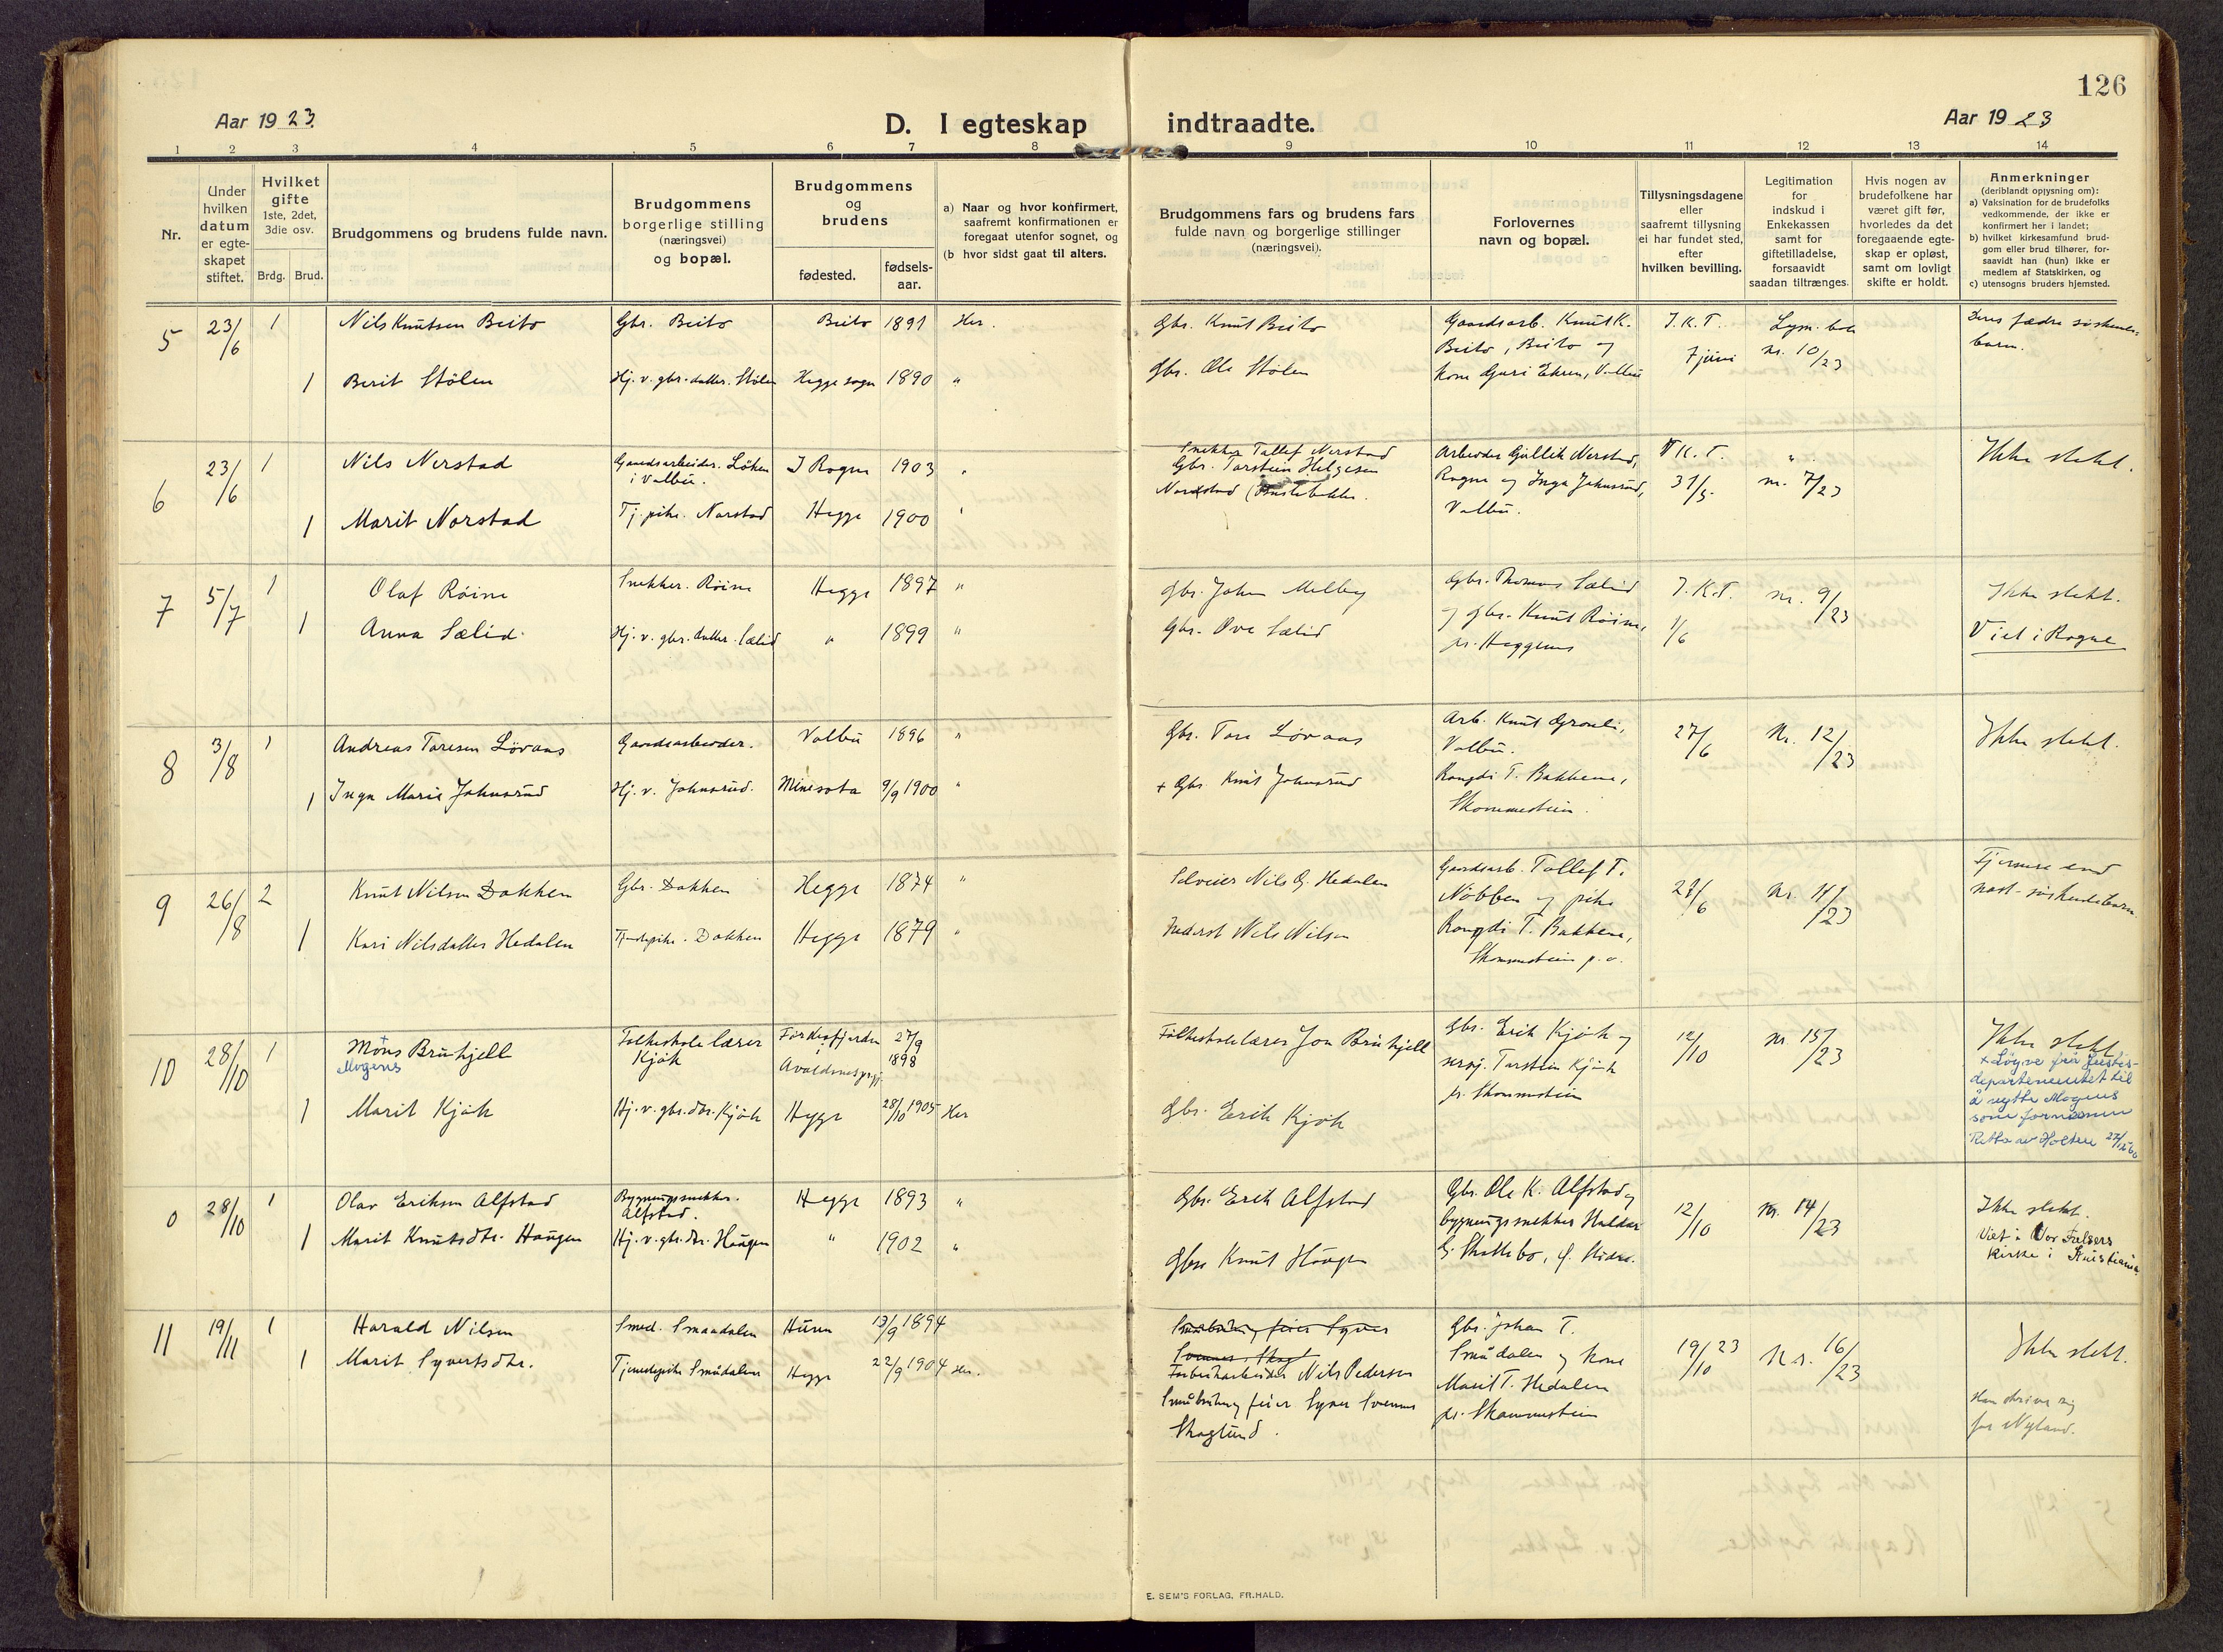 126
Aar 1923.
D. I egteskap indtraadte.
Aar 1923
1 2 3 4 5 6 7 8 9 10 11 12 13 14
Nr.
Under
hvilken
datum
er egte-
skapet
stiftet.
Hvilket
gifte
1ste, 2det,
3die osv.
Brdg. Brud.
Brudgommens og brudens fulde navn.
Brudgommens
borgerlige stilling
(næringsvei)
og bopæl.
Brudgommens
og
brudens
fødested.
fødsels-
aar.
a) Naar og hvor konfirmert,
saafremt konfirmationen er
foregaat utenfor sognet, og
(b hvor sidst gaat til alters.
Brudgommens fars og brudens fars
fulde navn og borgerlige stillinger
(næringsvei).
Forlovernes
navn og bopæl.
Tillysningsdagene
eller
saafremt tillysning
ei har fundet sted,
efter
hvilken bevilling.
Legitimation
for
indskud i
Enkekassen
samt for
giftetilladelse,
forsaavidt
saadan tiltrænges.
Hvis nogen av
brudefolkene har
været gift før,
hvorledes da det
foregaaende egte-
skap er opløst,
samt om lovligt
skifte er holdt.
Anmerkninger
(deriblandt opjysning om):
a) Vaksination for de brudefolks
vedkommende, der ikke er
konfirmert her i landet;
b) hvilket kirkesamfund brud-
gom eller brud tilhører, for-
saavidt han (hun) ikke er
medlem af Statskirken, og
c) utensogns bruders hjemsted.
5 23/6 1 Nils Knutsen Beito Gbr. Beito Beito 1891 Her. Gbr. Knut Beito Gaardsarb. Knut K. J.K.T. Lysn. bok
Beito, Beito og 7 juni nr. 10/23 barn.
1 Berit Stölen Hj. v. gbr.datter. Stölen Hegge sogn 1890 " Gbr. Ole Stölen kone Guri Ekren, Volbu
6 23/6 1 Nils Nerstad Gaardsarbeider. Löken I Rogne 1903 Snekker Tollef Nerstad Arbeider Gullik Nerstad, K.T. " Ikke slekt.
i Volbu. Gbr. Torstein Helgesen Rogne og Inga Johnsrud, 31/5. nr. 7/23
1 Marit Norstad Tj. pike. Norstad Hegge 1900 Volbu.
7 5/7 1 Olaf Röine Snekker. Röine Hegge 1897 " Gbr. John Melby Gbr. Thomas Sælid J.K.T. nr. 9/23 Ikke slekt.
1 Anna Sælid. Hj. v. gbr.datter. Sælid " 1899 " Gbr. Ove Sælid og gbr. Knut Röine, 1/6 Viet i Rogne
pr. Heggenes
8 3/8 1 Andreas Toresen Lövaas Gaardsarbeider. Volbu 1896 " Gbr. Tore Lövaas Arb. Knut Gronli, 27/6 Nr. 12/23 Ikke slekt.
Volbu.
1 Inga Marie Johnsrud Hj. v. Johnsrud. Minesota 9/9 1900 " + Gbr. Knut Johnsrud Rangdi T. Bakkene,
Skammestein.
9 26/8 2 Knut Nilsen Dokken Gbr. Dokken Hegge 1874 " Selveier Nils G. Hedalen Gaardsarb. Tollef T. Nr. 11/23 Fjernere end
Nöbben og pike næst-söskendebarn.
1 Kari Nilsdatter Hedalen Tjenestepike. Dokken Hegge 1879 " Inderst Nils Nilsen Rangdi T. Bakkene,
Skammestein p.a.
10 28/10 1 Möns Bruhjell Folkeskolelærer 27/9 Folkeskolelærer Jon Bruhjell Gbr. Erik Kjök og 12/10 nr 15/23 Ikke slekt
Mogens Kjök 1898 Torstein Kjök
pr. Skammestein
1 Marit Kjök Hj. v. gbr. dtr. Kjök Hegge 28/10 1905 Her Gbr. Erik Kjök
x Löyve frå justis-
departementet til
å nytte Mogens
som fornamn
0 28/10 1 Olav Eriksen Alfstad Bygningssnekker. Hegge 1893 " Gbr. Erik Alfstad Gbr. Ole K. Alfstad og 12/10 Nr. 14/23 Ikke slekt.
Alfstad. bygningssnekker Haldor
1 Marit Knutsdtr. Haugen Hj. v. gbr. dtr. Haugen " 1902 " Gbr. Knut Haugen
Viet i Vor Frelsers
kirke i Kristiania
11 19/11 1 Harald Nilsen Smed. Smaadalen Hurum 13/9 1894 Gbr. Johan T. 19/10 23 Nr. 16/23 Ikke slekt.
1 Marit Syvertsdtr. Tjenestepike Smådalen Hegge 22/9 1904 Her. Smådalen og kone
Fabrikarbeider Nils Pedersen Marit T. Hedalen
Småbruker feier Syver Svennes pr. Skammestein
Skoglund.
Han skriver sig
for Nyland.
E. SEM'S FORLAG, FR.HALD.